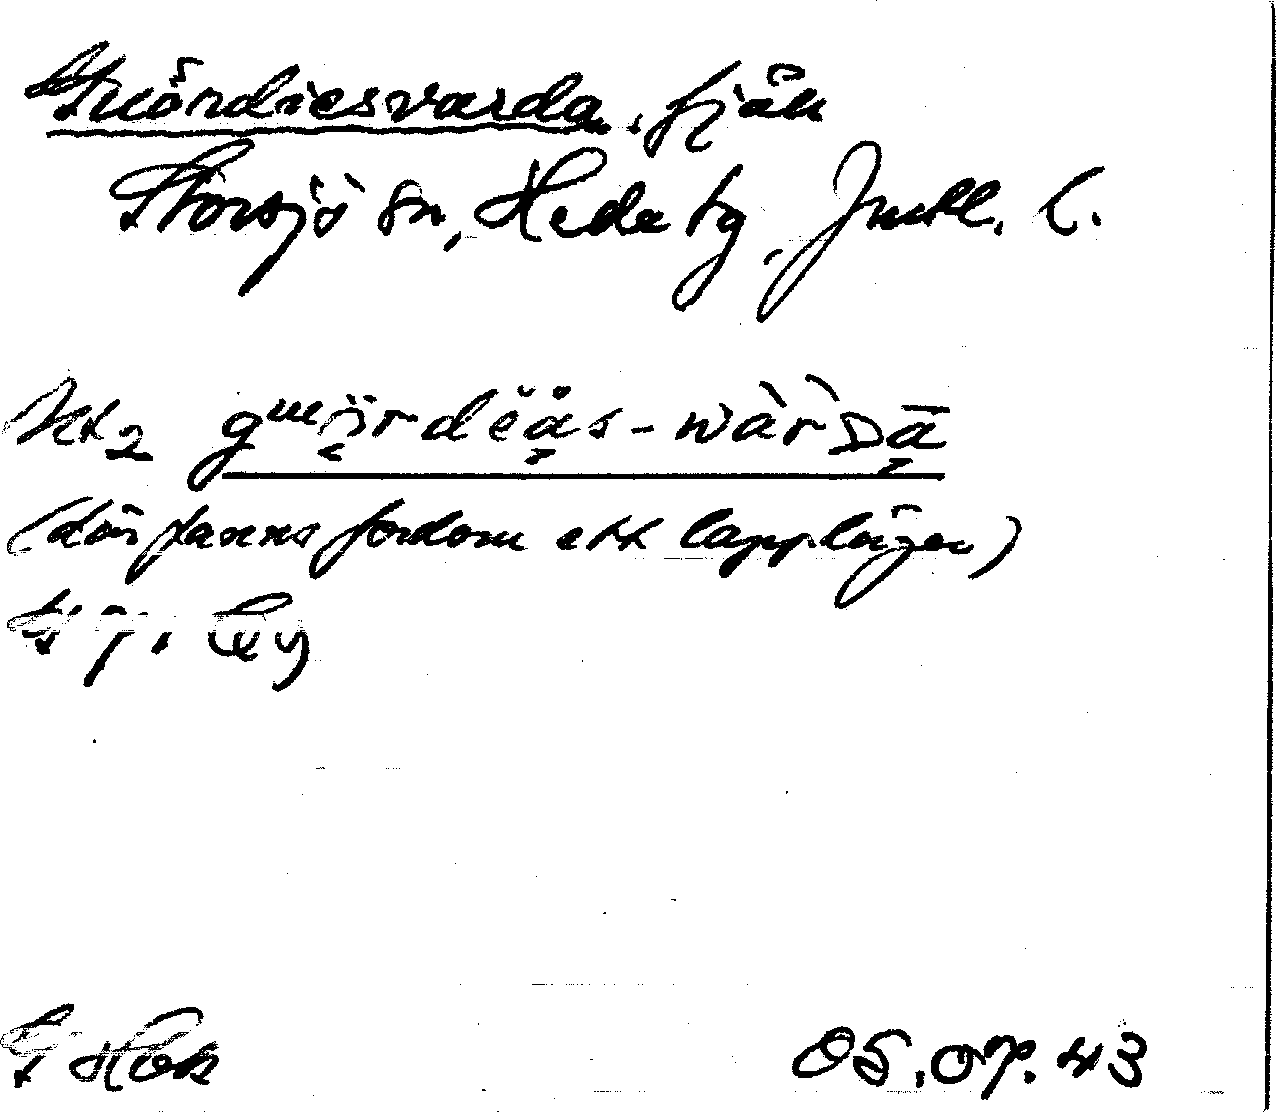 Guördiesvarda, fjäll
Storsjö sn, Hede tg, Jmtl. l.
guördëås-wàrdā
(där fanns fordom ett lappläger)
05.07.43